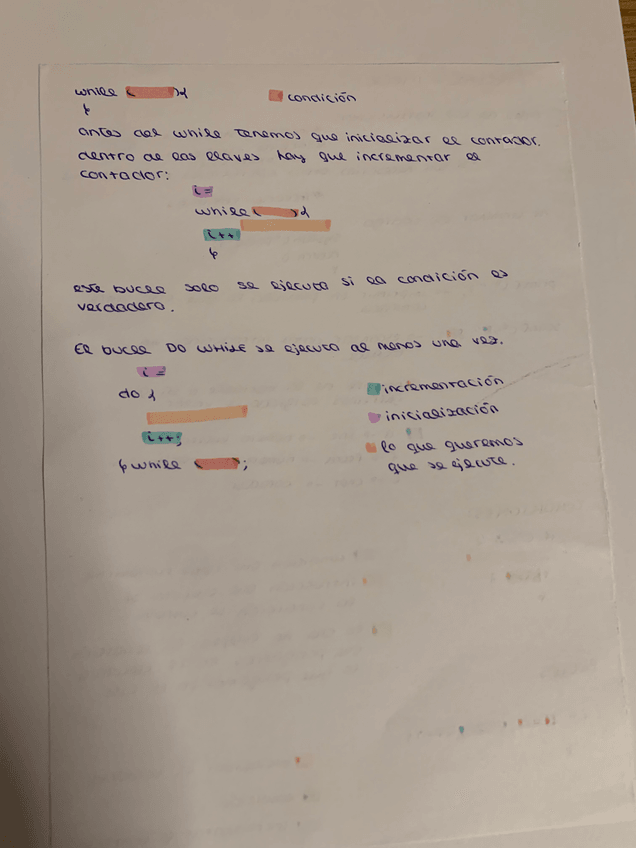 while (    ){
condición
}
antes del while tenemos que inicializar el contador.
dentro de las llaves hay que incrementar el
contador:
i=
while (    ){
i++
}
este bucle solo se ejecuta si la condición es
verdadera.
El bucle DO WHILE se ejecuta al menos una vez.
i=
do {
i++;
} while (    );
incrementación
inicialización
lo que queremos
que se ejecute.